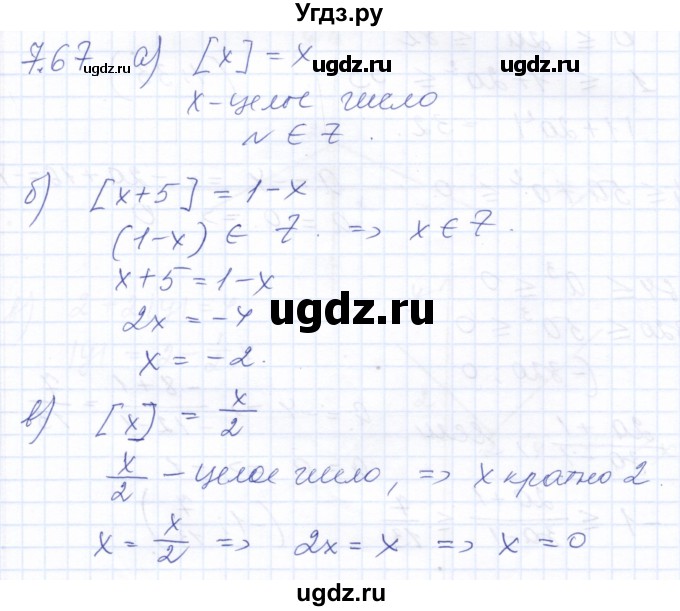 Угдз.ру
7.67 а) [x] = x
ugdz.ru ugdz.ru ugdz.ru
x - целое число
n ∈ Z.
б) [x+5] = 1-x
(1-x) ∈ Z. => x ∈ Z.
x+5 = 1-x
2x = -4
ugdz.ru
x = -2.
в) [x] = x/2
x/2 - целое число, => x кратно 2.
ugdz.ru ugdz.ru
x = x/2 => 2x = x => x = 0
ugdz.ru